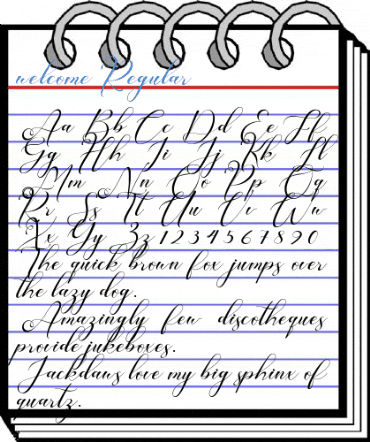 welcome Regular
Aa Bb Cc Dd Ee Ff
Gg Hh Ii Jj Kk Ll
Mm Nn Oo Pp Qq
Rr Ss Tt Uu Vv Ww
Xx Yy Zz 1 2 3 4 5 6 7 8 9 0
The quick brown fox jumps over
the lazy dog.
Amazingly few discotheques
provide jukeboxes.
Jackdaws love my big sphinx of
quartz.